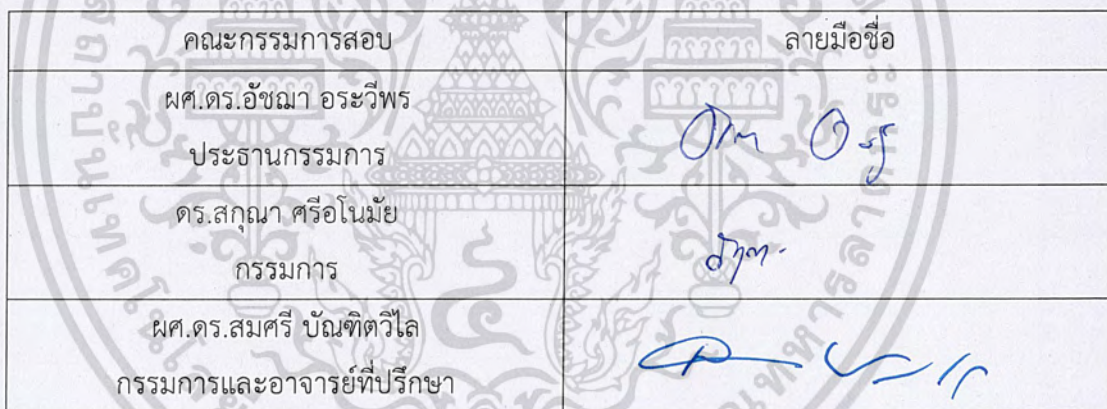 คณะกรรมการสอบ ลายมือชื่อ
ผศ.ดร.อัชฌา อระวีพร
ประธานกรรมการ
ดร.สกุณา ศรีอโนมัย
กรรมการ
ผศ.ดร.สมศรี บัณฑิตวิไล
กรรมการและอาจารย์ที่ปรึกษา